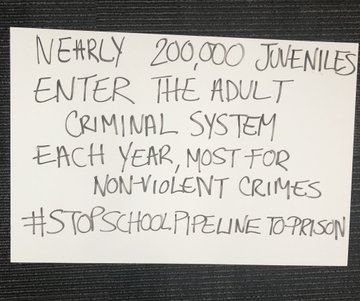 NEARLY 200,000 JUVENILES
ENTER THE ADULT
CRIMINAL SYSTEM
EACH YEAR, MOST FOR
NON-VIOLENT CRIMES
#STOPSCHOOLPIPELINE TO-PRISON